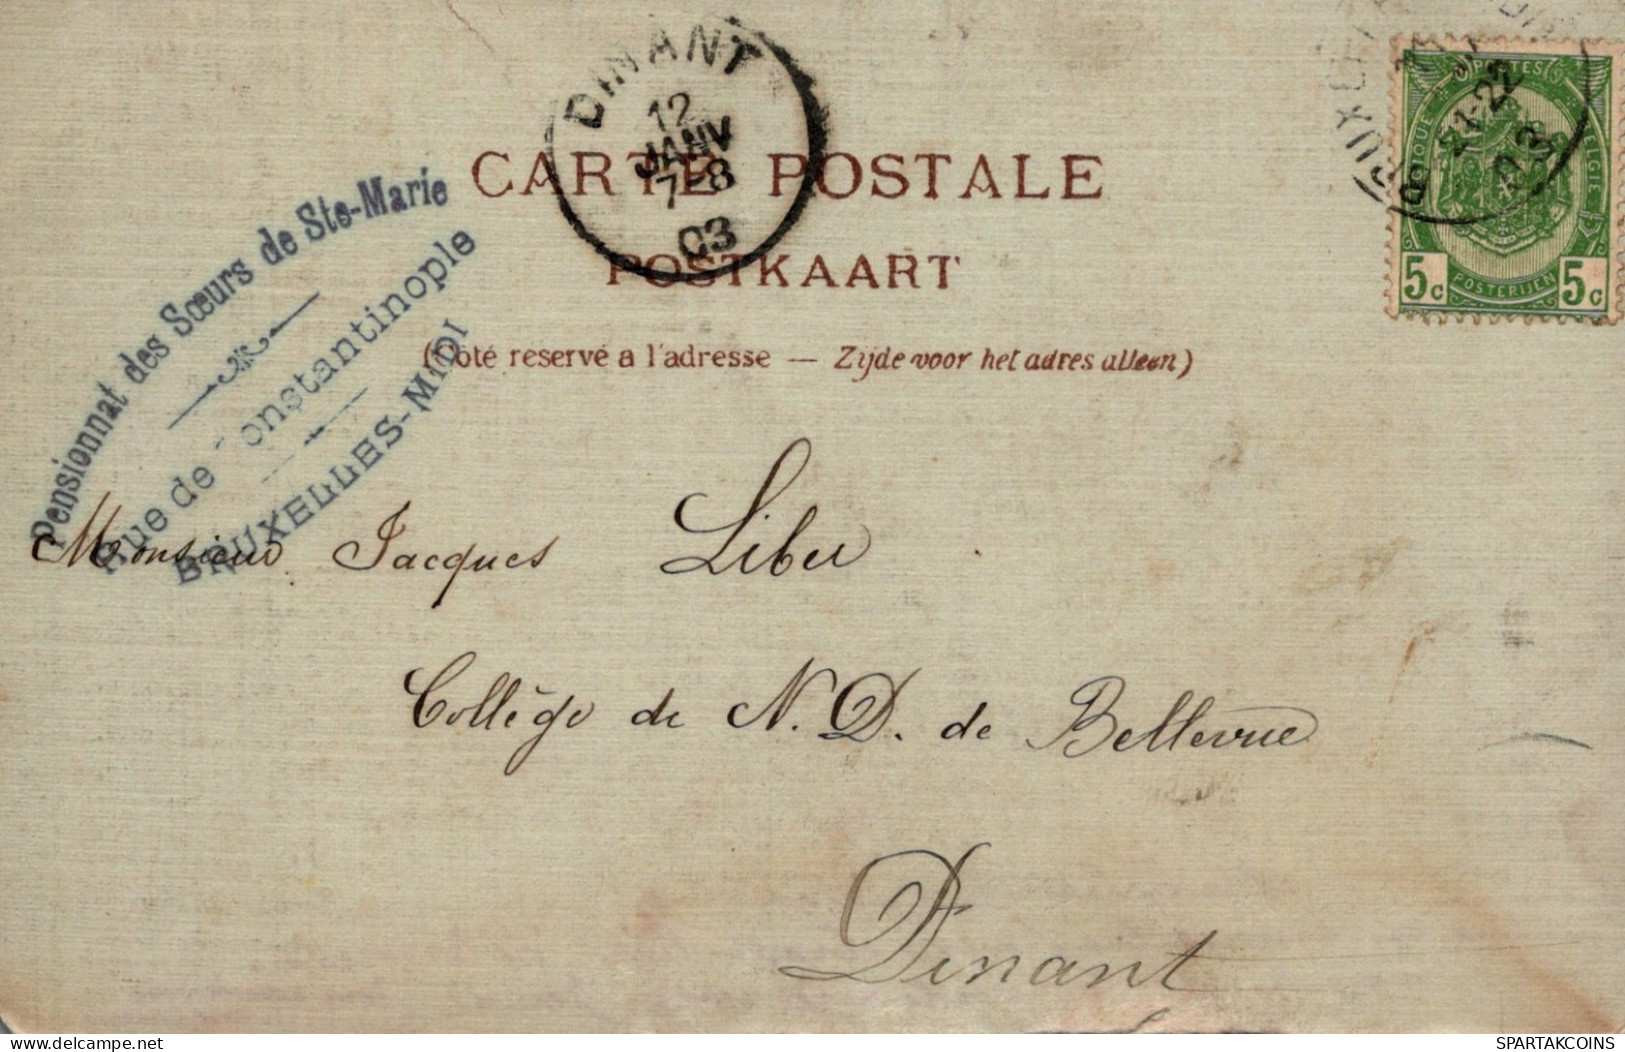 DINANT
12
JANV
7-8
03
21-22
03
POSTES
BELGIE
5c POSTERIJEN 5c
CARTE POSTALE
POSTKAART
(Côté reservé a l'adresse — Zijde voor het adres alleen)
Pensionnat des Sœurs de Ste-Marie
Rue de Constantinople
BRUXELLES-MIDI
Monsieur Jacques Liber
Collège de N. D. de Bellevue
Dinant
www.delcampe.net
SPARTAKCOINS